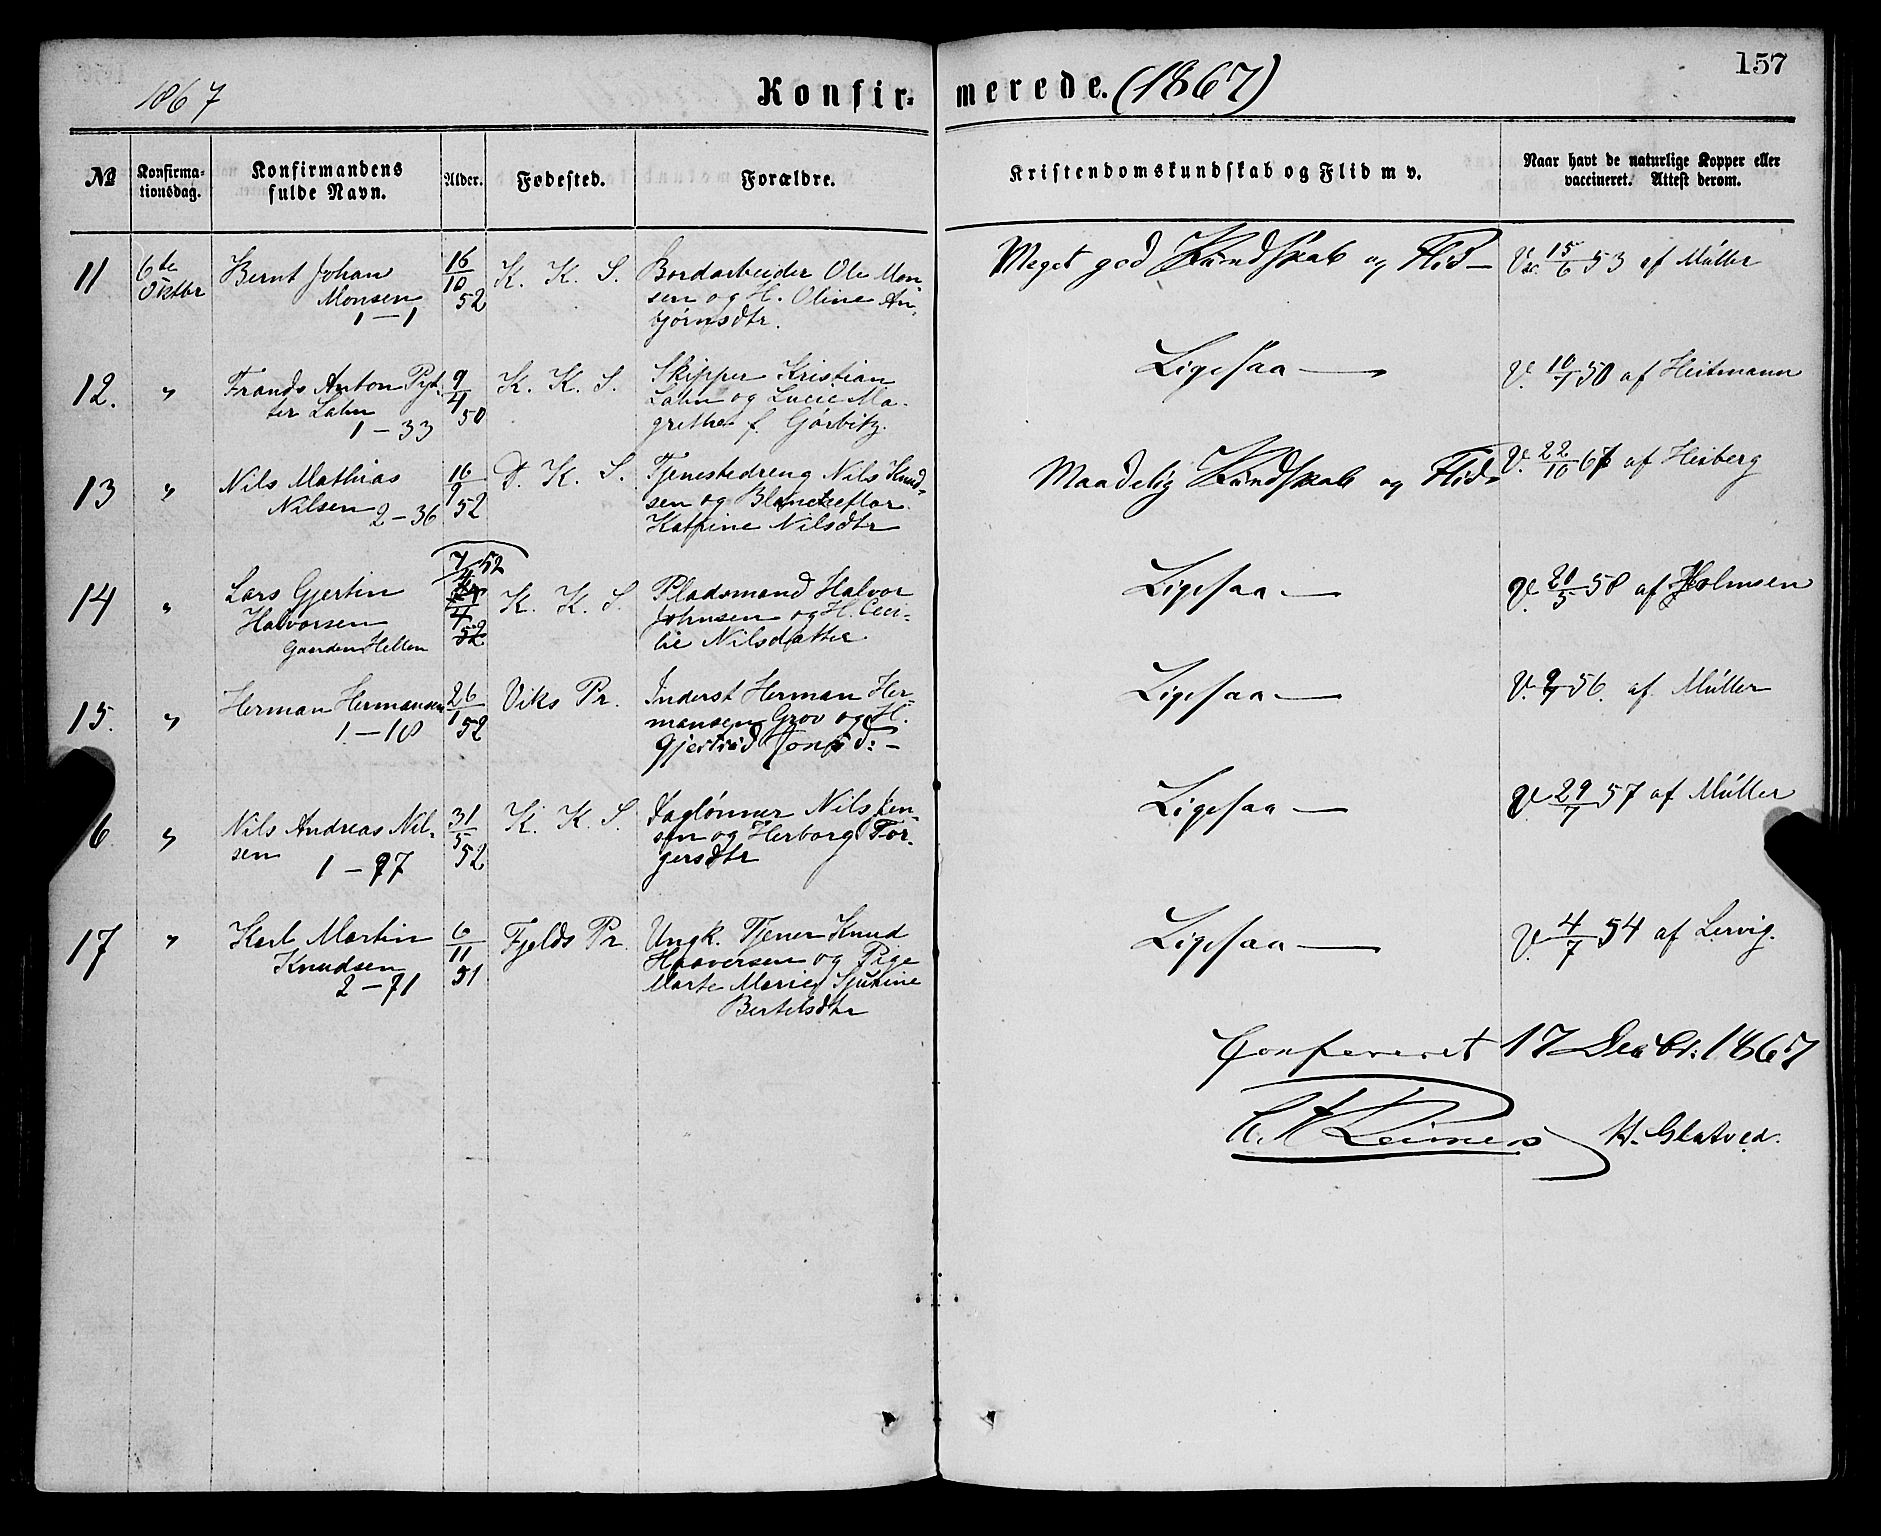 157
1867 Konfirmerede. (1867)
№ Konfirmationsdag. Konfirmandens fulde Navn. Alder. Fødested. Forældre. Kristendomskundskab og Flid m v. Naar havt de naturlige Kopper eller vaccineret. Attest derom.
11 6te Oktbr Bernt Johan Monsen 1-1 16/10 52 K. K. S. Bordarbeider Ole Mon-
sen og H. Oline An-
bjørnsdtr. Meget god Kundskab og Flid — V. 15/6 53 af Müller
12. " Frands Anton Pyt-
ter Lahn 1-33 9/4 50 K. K. S. Skipper Kristian
Lahn og Lucie Ma-
grethe f. Gørbitz. Ligesaa — V. 50 af Heitmann
13 " Nils Mathias
Nilsen 2-36 16/9 52 D. K. S. Tjenestedreng Nils Knud-
sen og
Katrine Nilsdtr Maadelig Kundskab og Flid V. 22/10 67 af Heiberg
14 " Lars Gjertin
Halvorsen
Gaarden Hellen 7/4 52 K. K. S. Pladsmand Halvor
Johnsen og H. Ceci-
lie Nilsdatter Ligesaa — V. 20/5 58 af Holmsen
15. " Herman Hermansen
1-18 26/1 52 Viks Pr. Inderst Herman Her-
mansen Grov og H.
Gjertrud Ligesaa — V. 56. af Müller
6 " Nils Andreas Nil-
sen 1-97 31/5 52 K. K. S. Daglønner Nils Jen-
sen og Herborg Tor-
gersdtr Ligesaa — V. 29/7 57 af Müller
17 " Karl Martin
Knudsen
2-71 6/11 51 Fjelds Pr. Ungk. Tjener Knud
Haaversen og Pige
Marte Marie Sjurine
Bertelsdtr Ligesaa — V. 4/7 54 af Lervig.
Confereret 17 Decbr: 1867
H. Glatved.